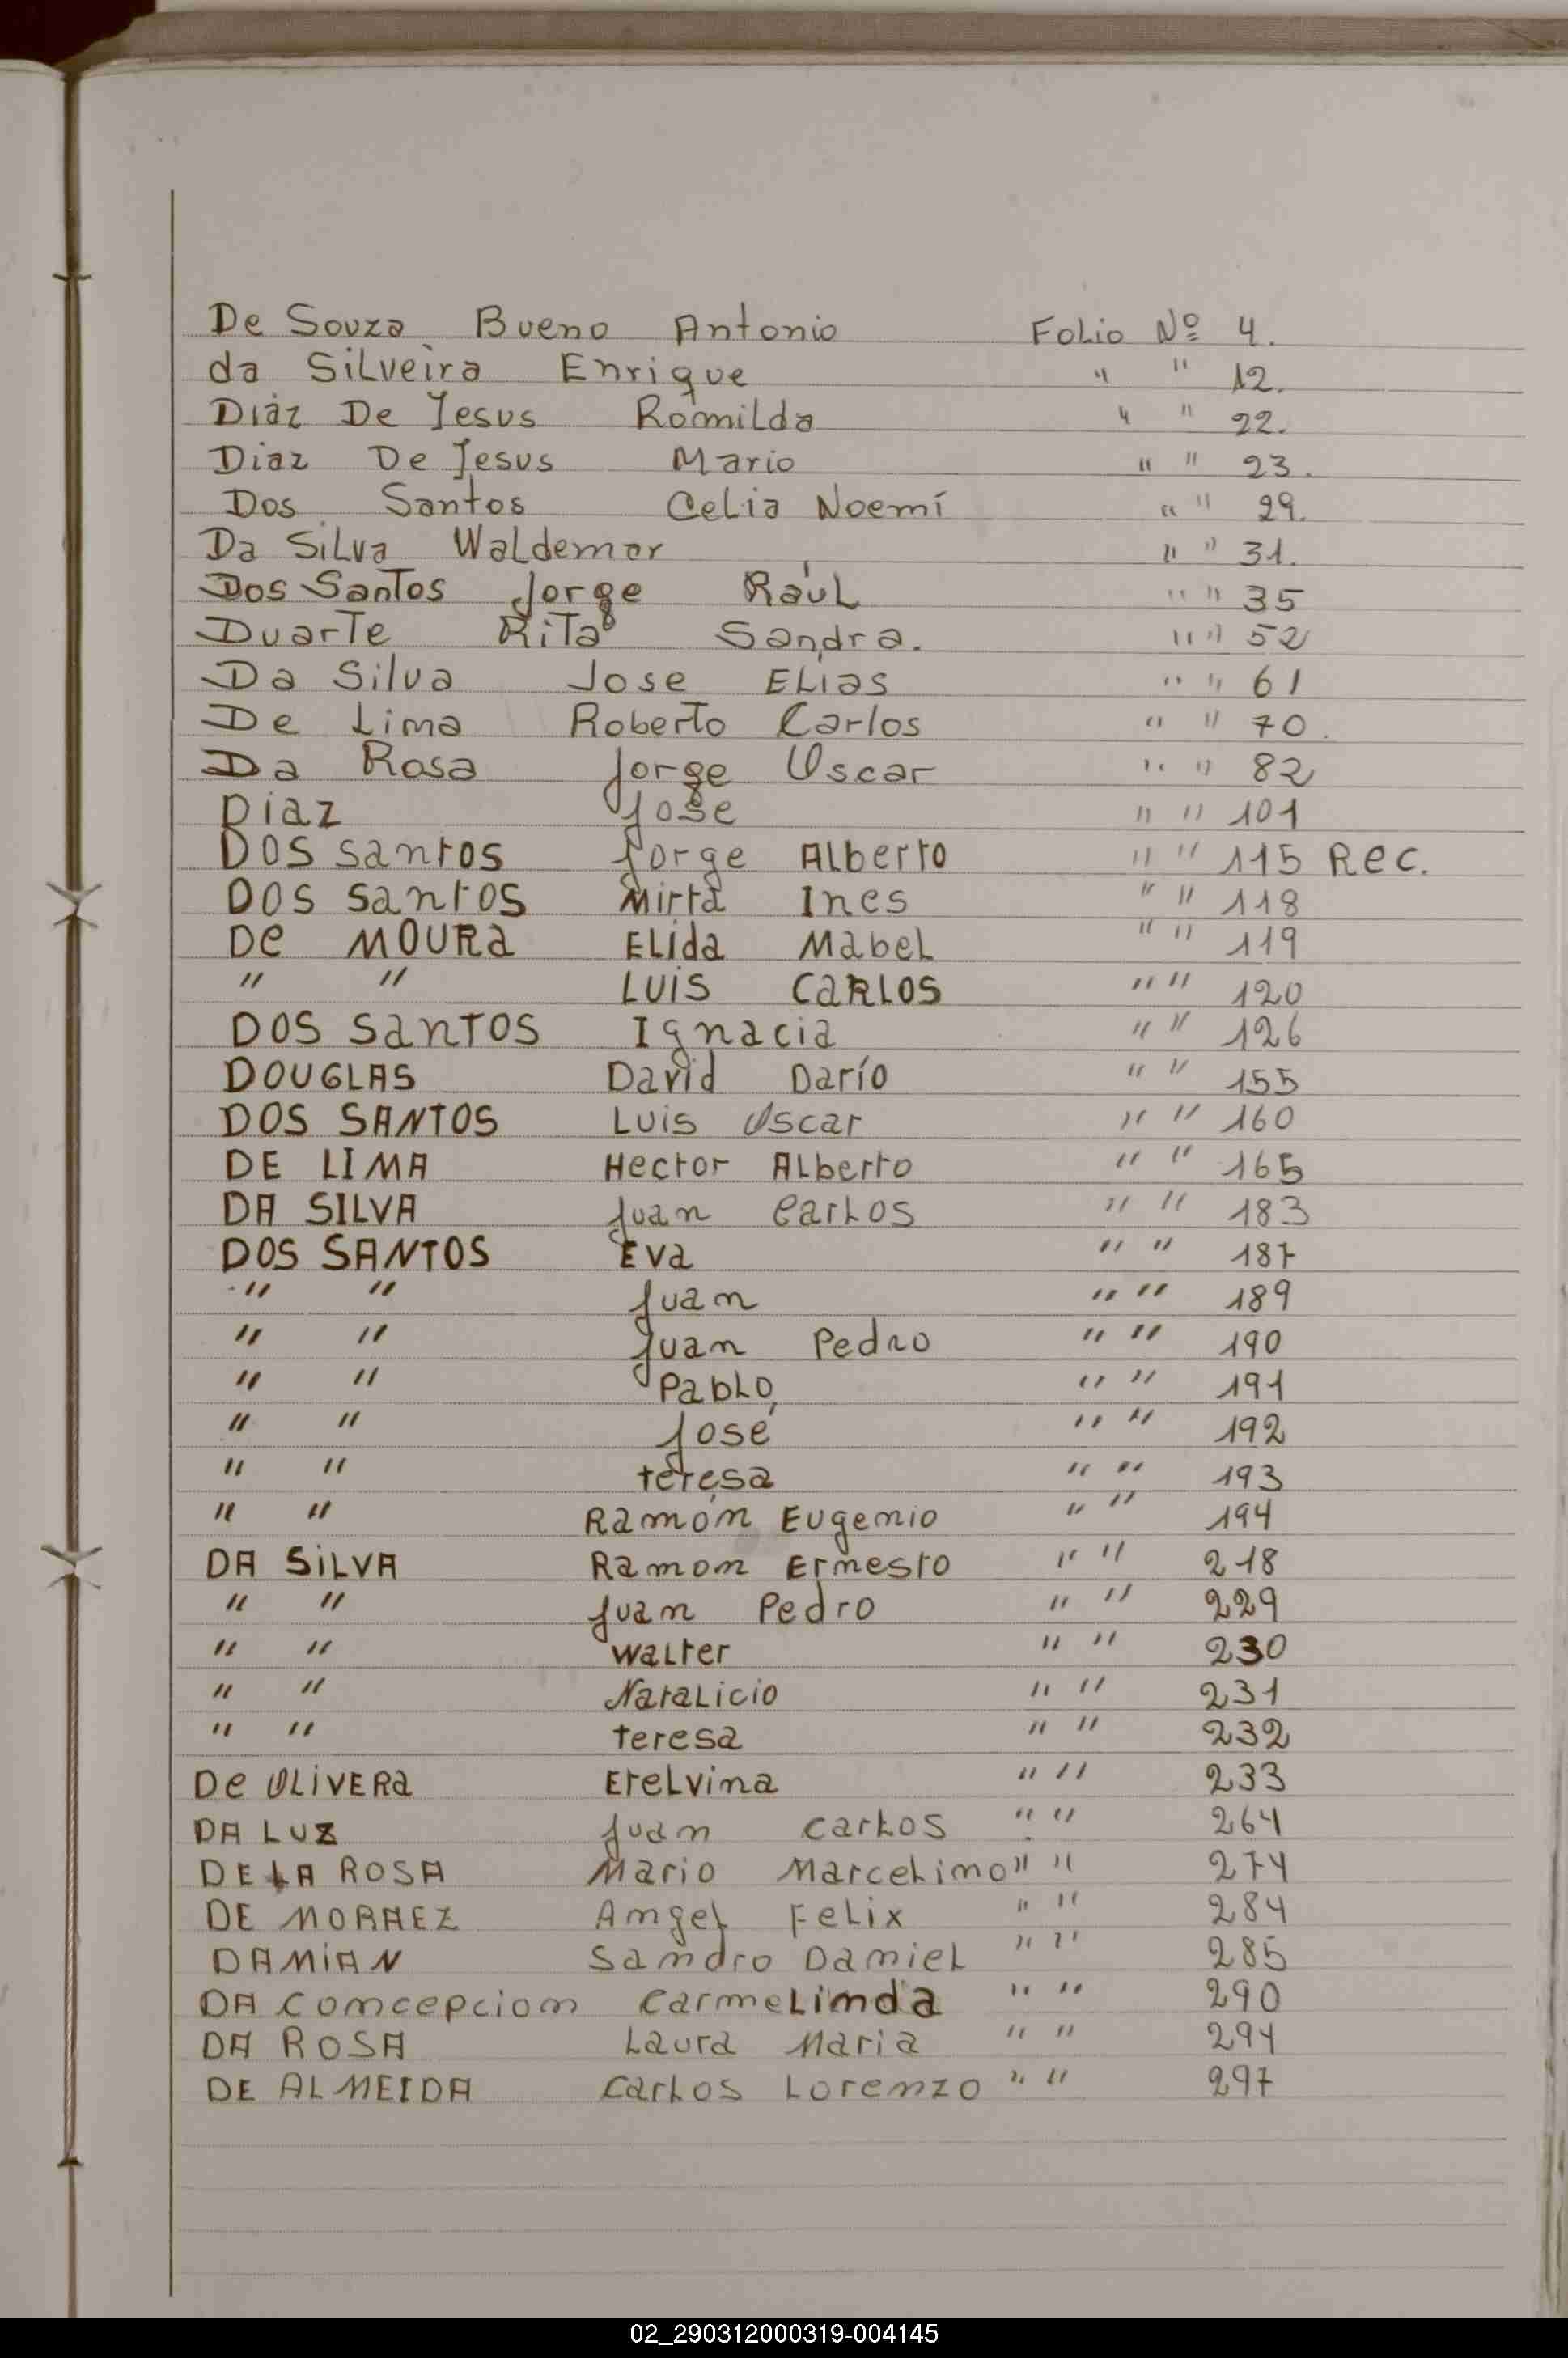 De Souza Bueno Antonio Folio Nº 4.
da Silveira Enrique " " 12.
Diáz De Jesus Romilda " " 22.
Diaz De Jesus Mario " " 23.
Dos Santos Celia Noemí " " 29.
Da Silva Waldemar " " 31.
Dos Santos Jorge Raúl " " 35
Duarte Rita Sandra. " " 52
Da Silva Jose Elias " " 61
De Lima Roberto Carlos " " 70.
Da Rosa Jorge Oscar " " 82
Diaz Jose " " 101
Dos santos Jorge Alberto " " 115 Rec.
Dos santos Mirta Ines " " 118
De MOURa ELida MabeL " " 119
" " LUis CaRLOS " " 120
DOS SanTOS Ignacia " " 126
DOUGLAS David Darío " " 155
DOS SANTOS Luis Oscar " " 160
DE LIMA Hector ALberto " " 165
DA SILVA Juan CarLos " " 183
DOS SANTOS Eva " " 187
" " Juan " " 189
" " Juan Pedro " " 190
" " PabLo " " 191
" " José " " 192
" " teresa " " 193
" " Ramón Eugenio " " 194
DA SiLVA Ramon Ernesto " " 218
" " Juan Pedro " " 229
" " WaLter " " 230
" " NataLicio " " 231
" " teresa " " 232
De OLiVERa EteLvina " " 233
DA LUZ Juan CarLos " " 264
DE LA ROSA Mario MarceLino " " 274
DE MORAEZ AngeL FeLix " " 284
DAMiAN Sandro DanieL " " 285
DA Concepcion CarmeLinda " " 290
DA ROSA Laura Maria " " 294
DE ALMEIDA CarLos Lorenzo " " 297
02_290312000319-004145